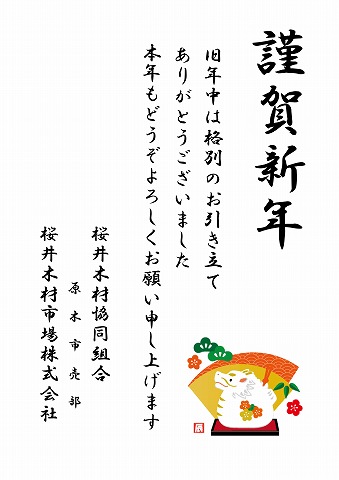 謹賀新年
旧年中は格別のお引き立て
ありがとうございました
本年もどうぞよろしくお願い申し上げます
桜井木材協同組合
原木市売部
桜井木材市場株式会社